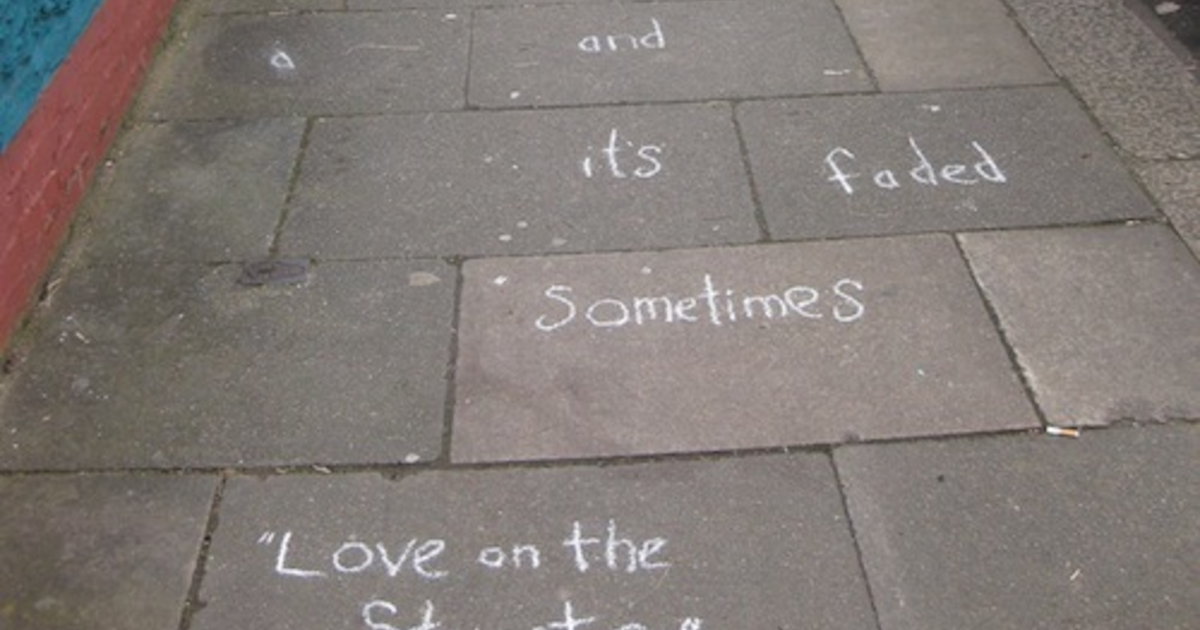 a and
it's faded
Sometimes
"Love on the
Streets"